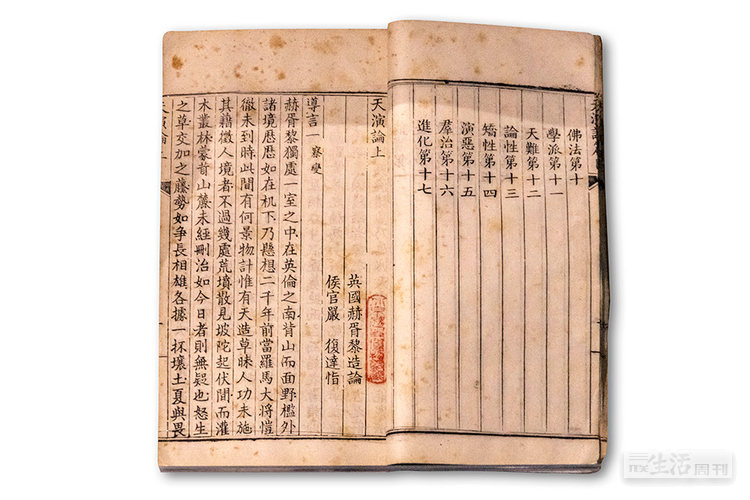 佛法第十
學派第十一
天難第十二
論性第十三
矯性第十四
演惡第十五
羣治第十六
進化第十七
天演論上
英國赫胥黎造論
侯官嚴 復達恉
導言一 察變
赫胥黎獨處一室之中在英倫之南背山而面野檻外
諸境歷歷如在机下乃懸想二千年前當羅馬大將愷
徹未到時此間有何景物計惟有天造草昧人功未施
其藉徵人境者不過幾處荒墳散見坡陀起伏間而灌
木叢林蒙茸山麓未經刪治如今日者則無疑也怒生
之草交加之藤勢如爭長相雄各據一抔壤土夏與畏
天演論上
生活周刊